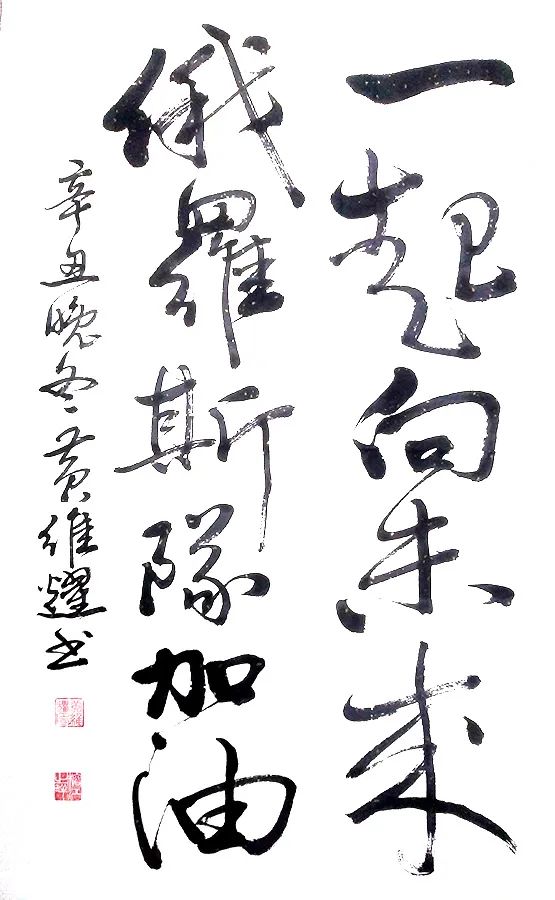 一起向未来
俄羅斯隊加油
辛丑晚冬黄維耀书